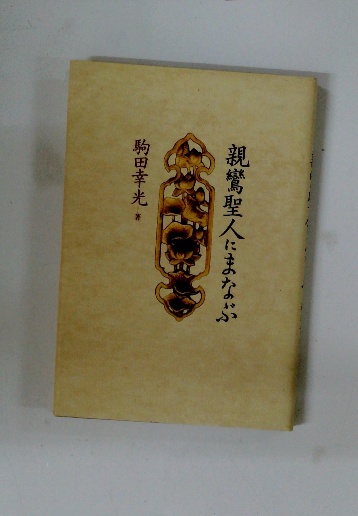 親鸞聖人にまなぶ
駒田幸光 著